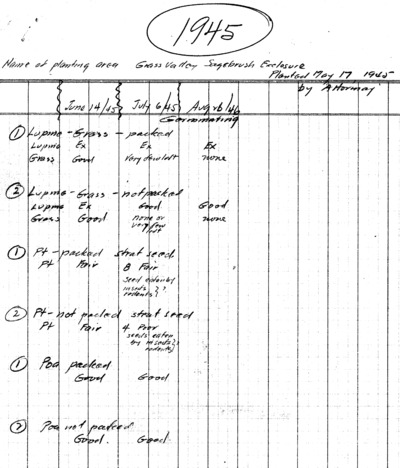 1945
Name of planting area Grass Valley Sagebrush Enclosure
Planted May 17 1945
by A Hormay
June 14/45 July 6/45 Aug 26/46
Germinating
① Lupine - Grass - packed
Lupine Ex Ex Ex
Grass Good Very few left none
② Lupine - Grass - not packed
Lupine Ex Good Good
Grass Good none or none
very few
left
① Pt - packed strat seed
Pt Fair 8 Fair
seed eaten by
insects ??
rodents?
② Pt - not packed strat seed
Pt Fair 4 Poor
seeds eaten
by insects?
rodents?
① Poa packed
Good Good
② Poa not packed
Good. Good.